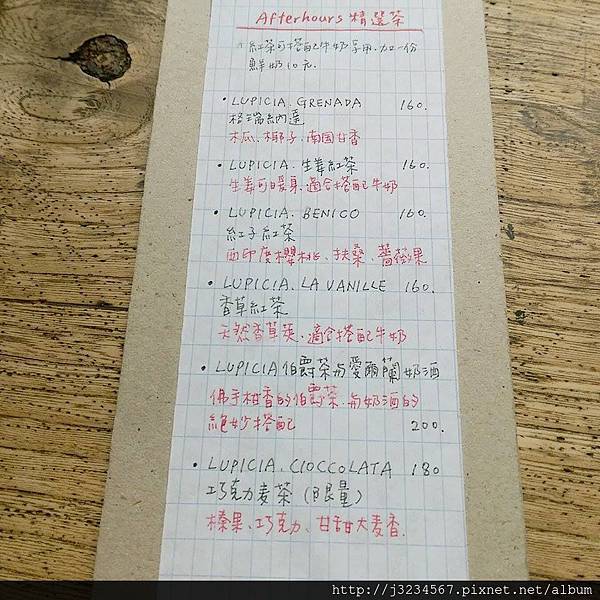 Afterhours 精選茶
*紅茶可搭配牛奶享用,加一份
鮮奶10元.
• LUPICIA. GRENADA 160.
格瑞納達
木瓜、椰子、南國甘香
• LUPICIA. 生姜紅茶 160.
生姜可暖身,適合搭配牛奶
• LUPICIA. BENICO 160.
紅子紅茶
西印度櫻桃、扶桑、薔薇果
• LUPICIA. LA VANILLE 160.
香草紅茶
天然香草莢,適合搭配牛奶
• LUPICIA 伯爵茶与愛爾蘭奶酒
佛手柑香的伯爵茶,与奶酒的
絕妙搭配 200.
• LUPICIA. CIOCCOLATA 180
巧克力麦茶 (限量)
榛果、巧克力、甘甜大麦香.
http://j3234567.pixnet.net/album